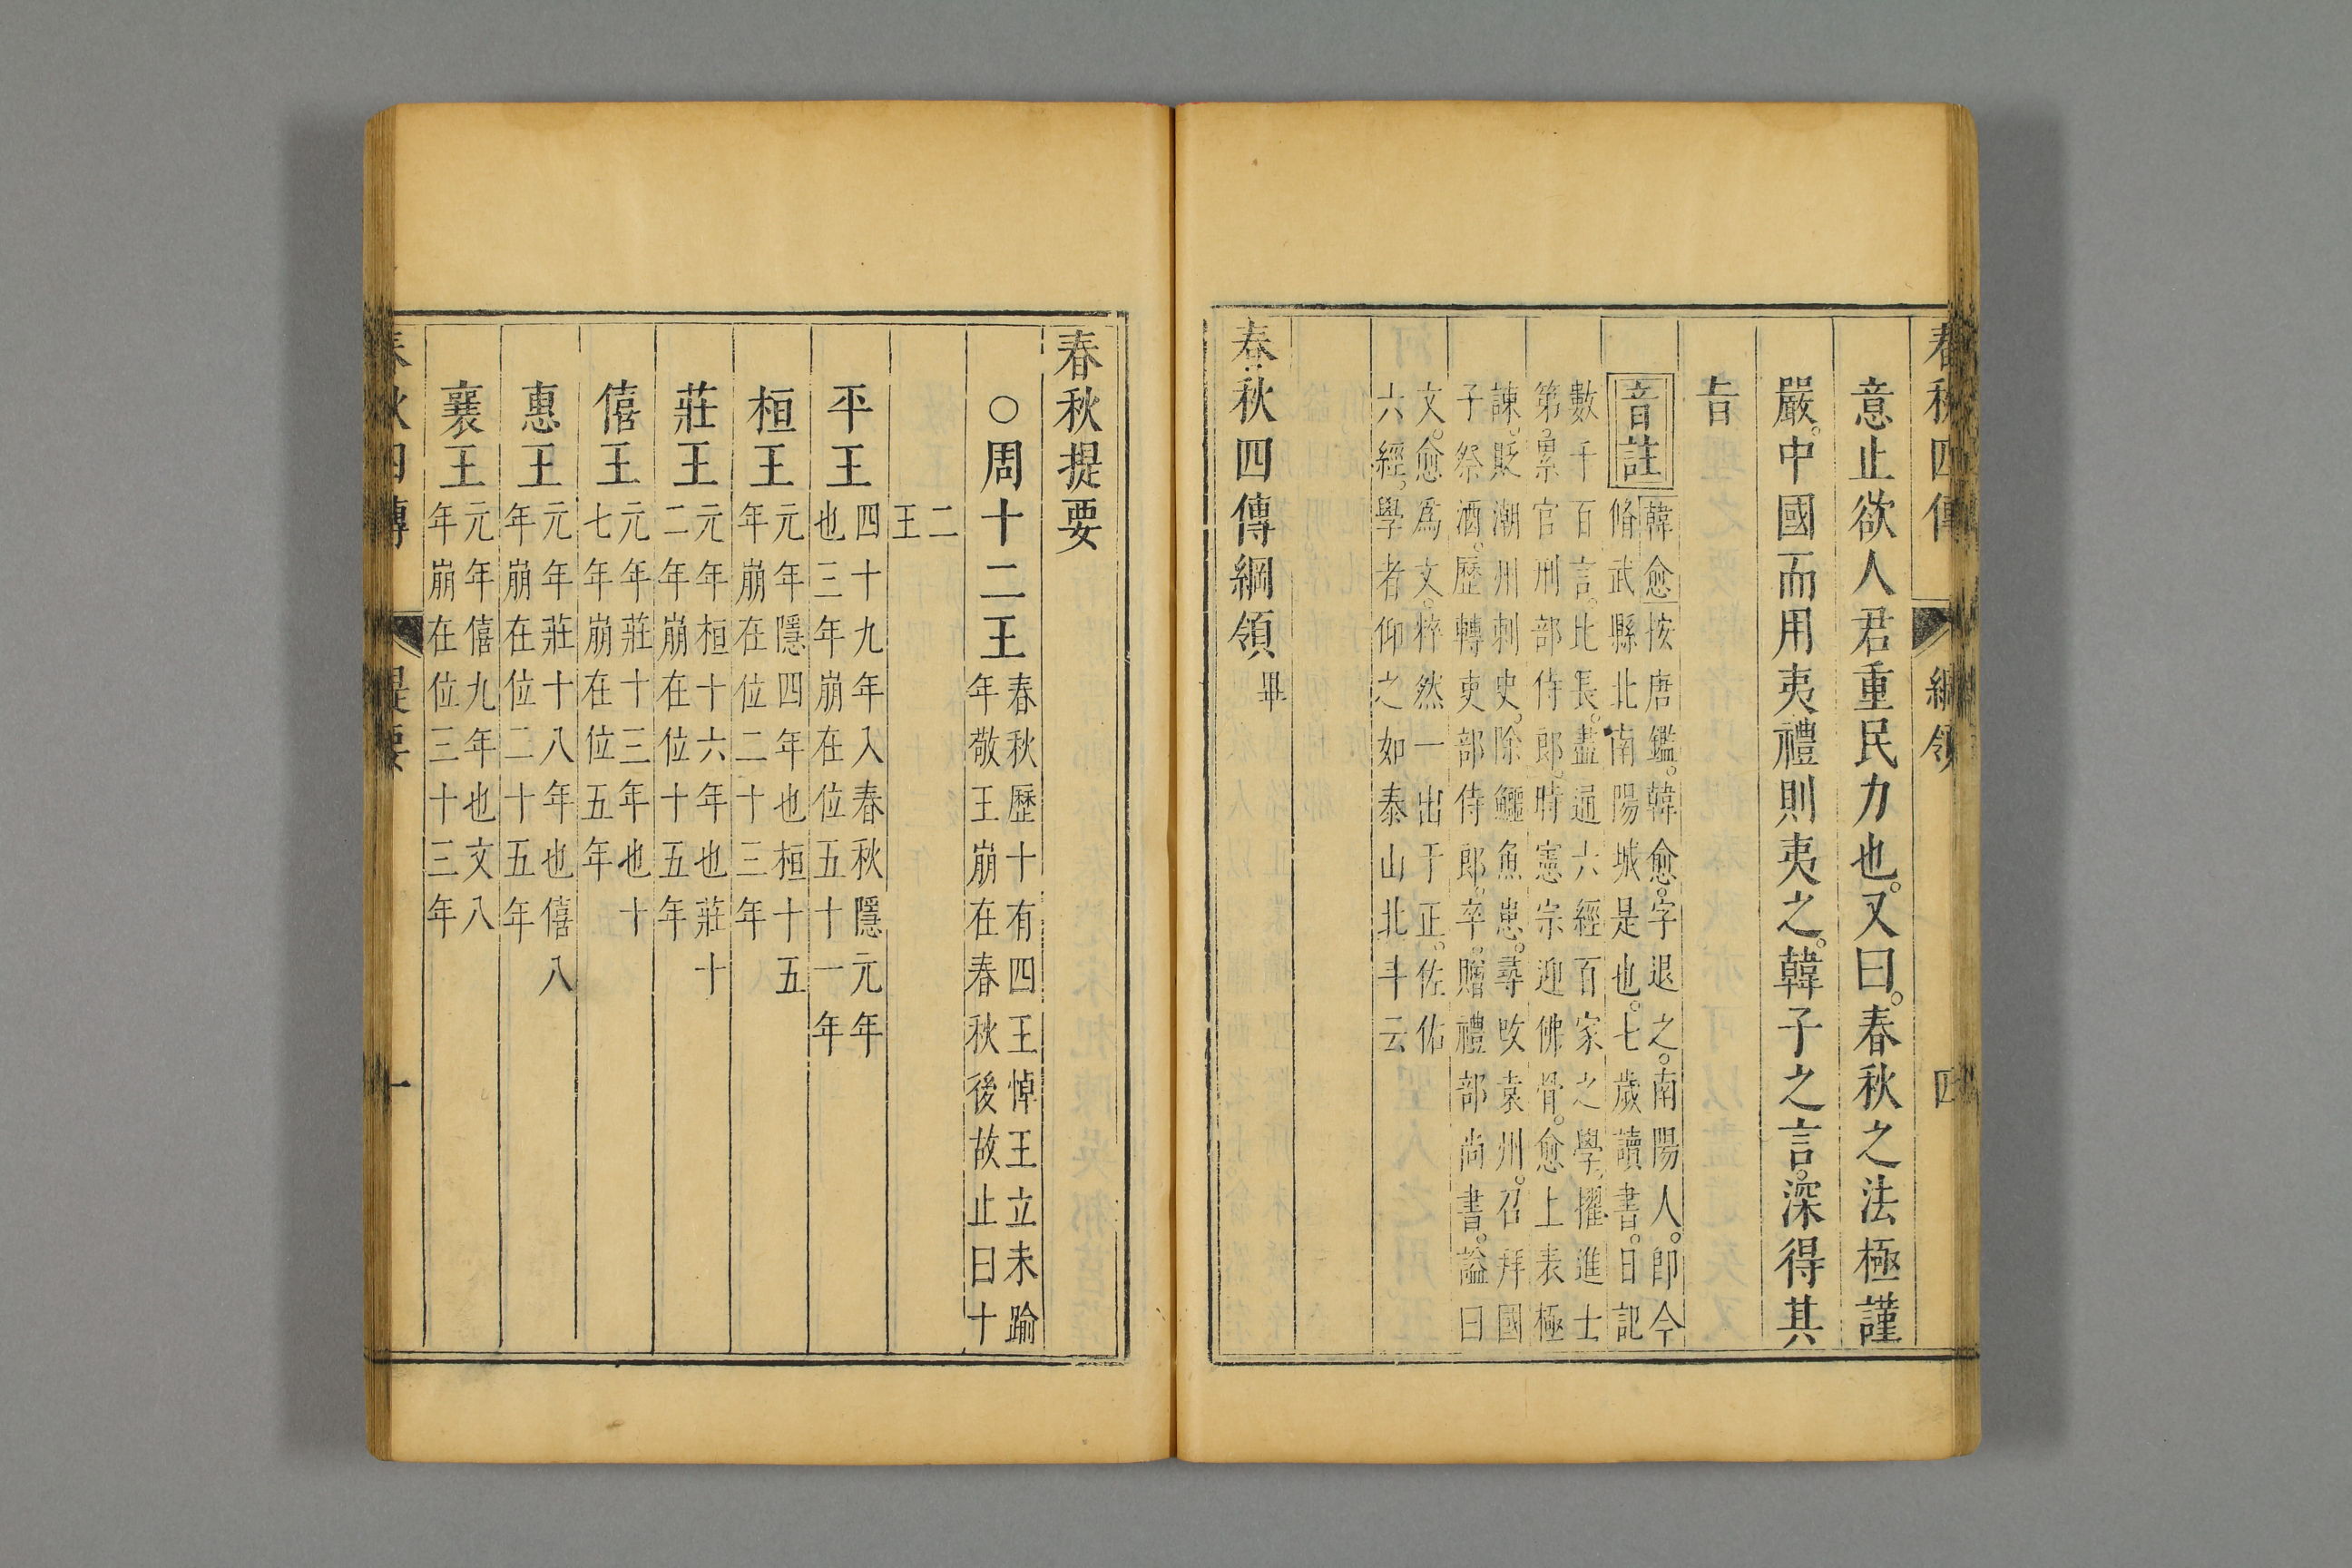 春秋四傳 綱領 四
意止欲人君重民力也。又曰。春秋之法極謹
嚴。中國而用夷禮則夷之。韓子之言。深得其
旨
音註
韓愈 按唐鑑。韓愈。字退之。南陽人。卽今
脩武縣北南陽城是也。七歲讀書。日記
數千百言。比長。盡通六經百家之學。擢進士
第。累官刑部侍郎。時憲宗迎佛骨。愈上表極
諫。貶潮州刺史。除鱷魚患。尋改袁州。召拜國
子祭酒。歷轉吏部侍郎。卒。贈禮部尚書。謚曰
文。愈爲文。粹然一出于正。佐佑
六經。學者仰之如泰山北斗云
春秋四傳綱領畢
春秋提要
○周十二王
春秋歷十有四王悼王立未踰
年敬王崩在春秋後故止曰十
二
王
平王
四十九年入春秋隱元年
也三年崩在位五十一年
桓王
元年隱四年也桓十五
年崩在位二十三年
莊王
元年桓十六年也莊十
二年崩在位十五年
僖王
元年莊十三年也十
七年崩在位五年
惠王
元年莊十八年也僖八
年崩在位二十五年
襄王
元年僖九年也文八
年崩在位三十三年
春秋四傳 提要 一